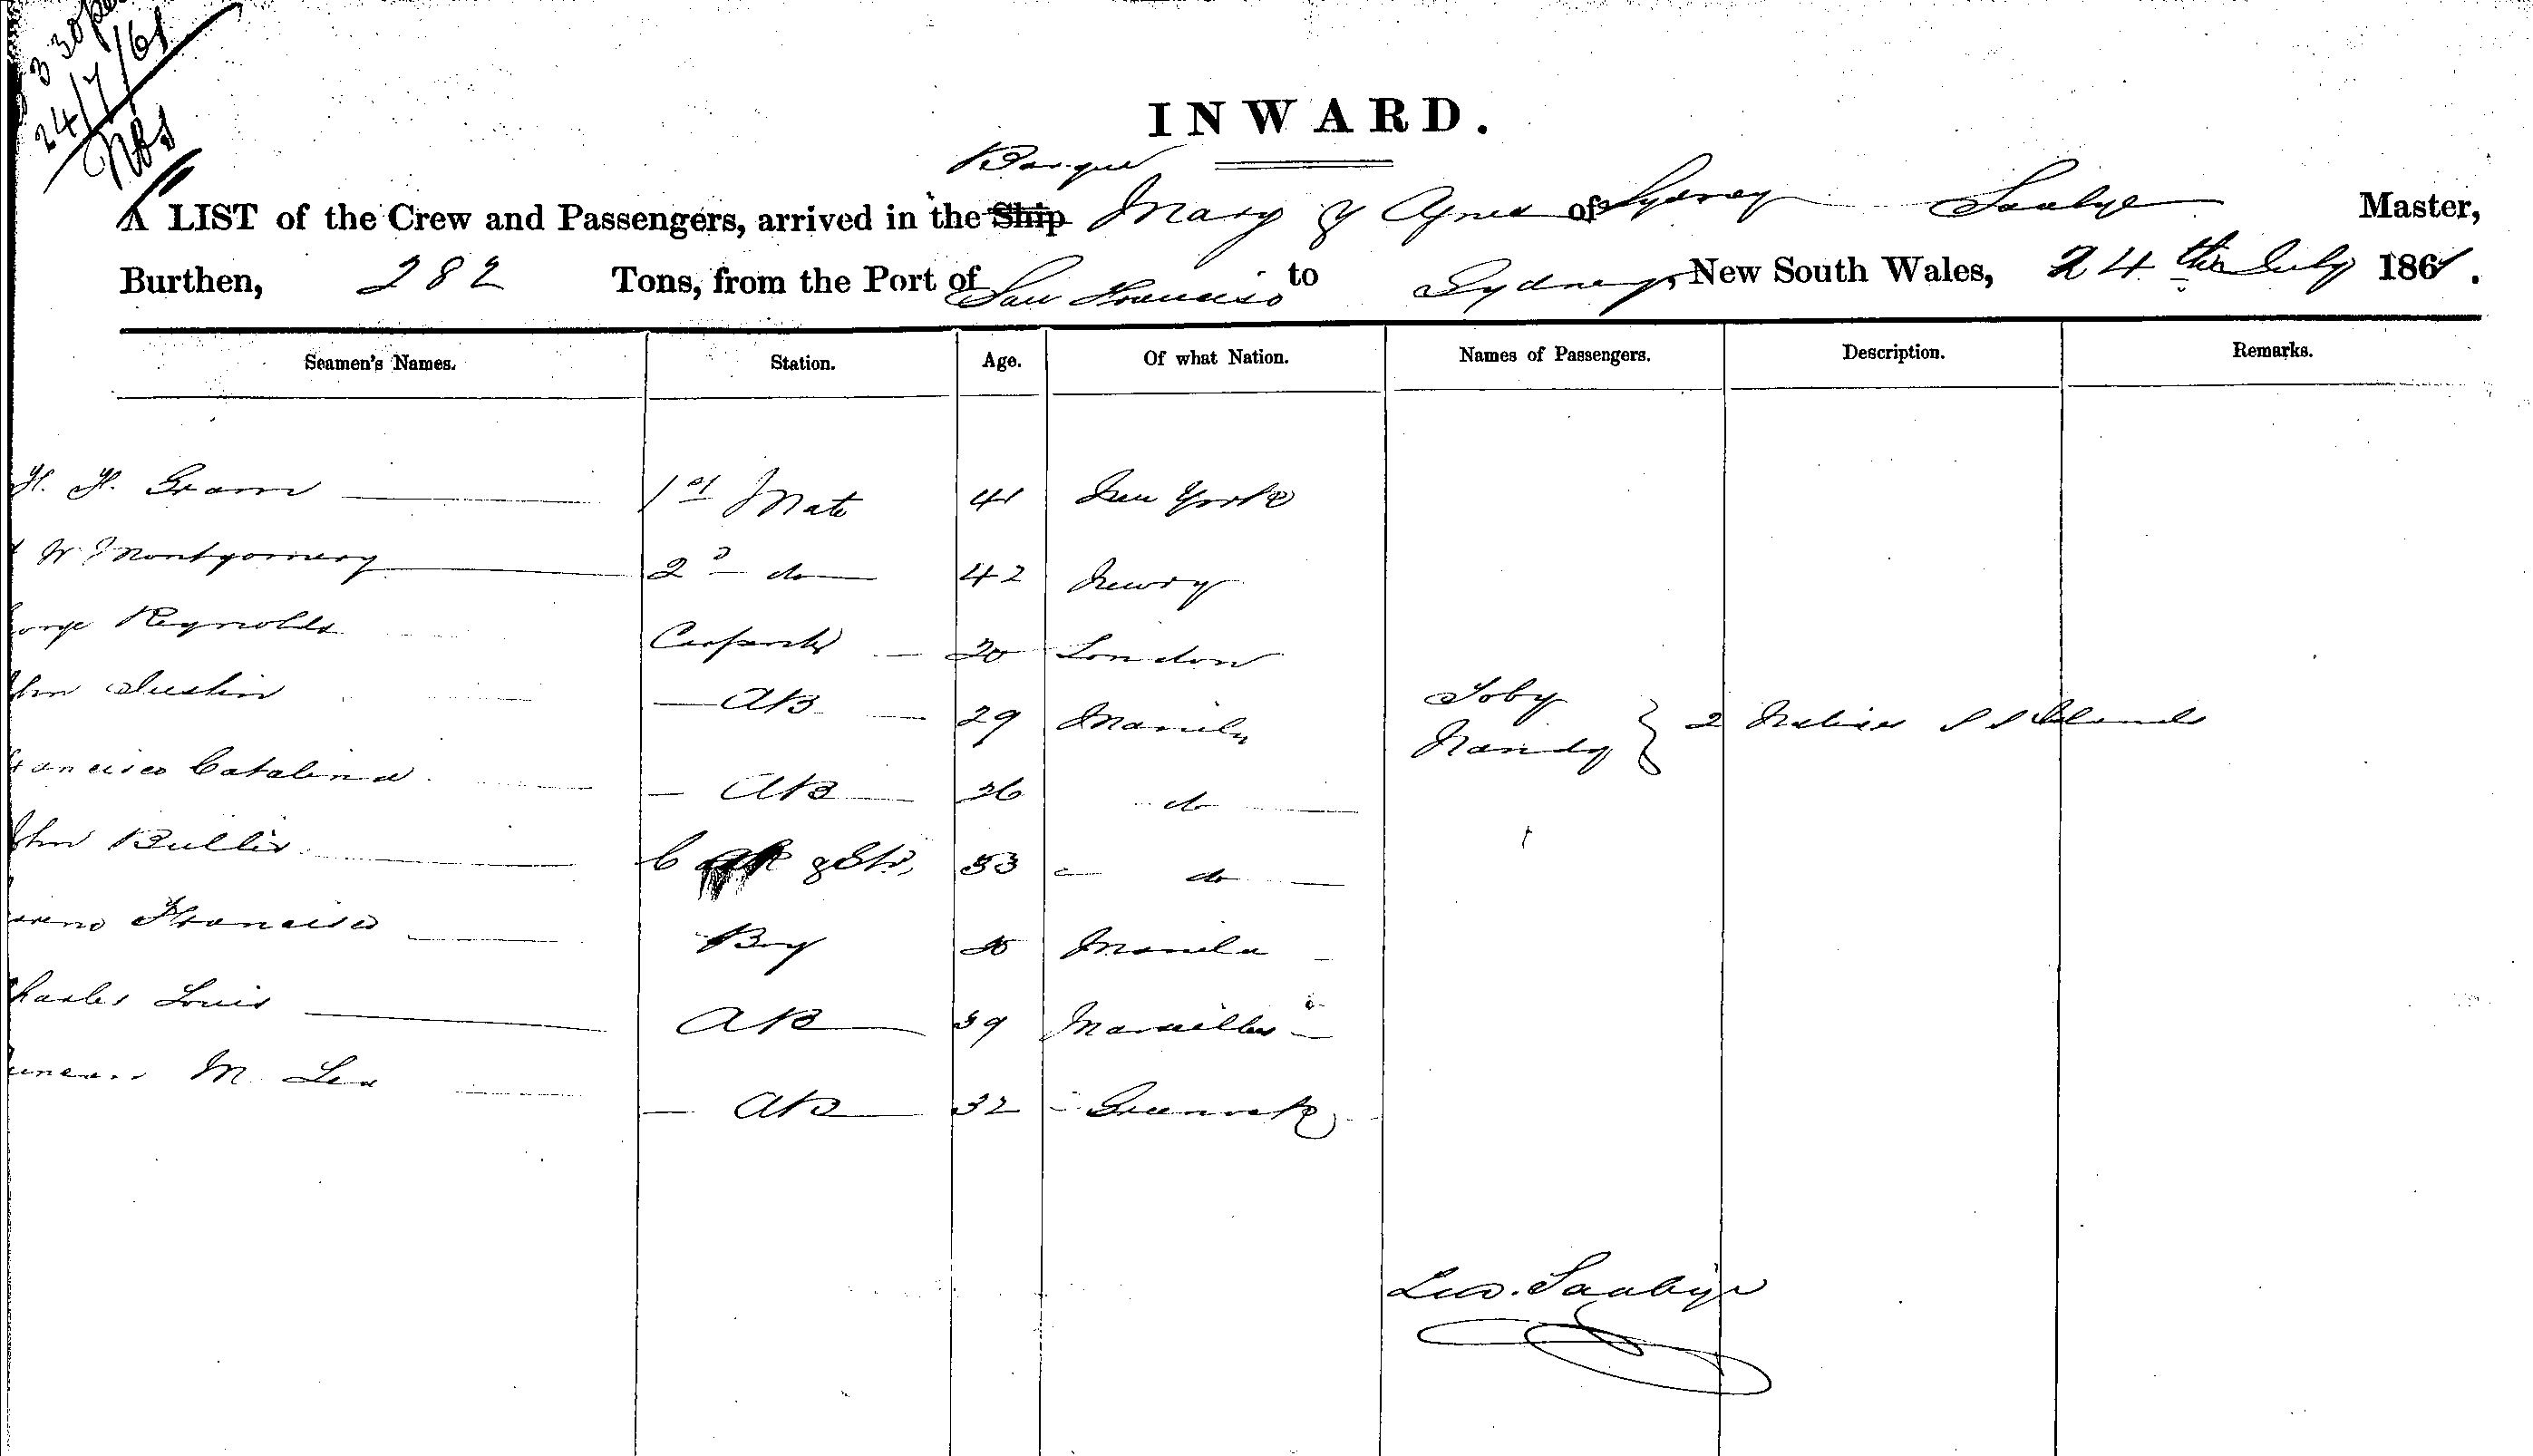 3 30
24/7/61
INWARD.
Barque
A LIST of the Crew and Passengers, arrived in the Ship Mary & Agnes of Sydney Saabye Master,
Burthen, 282 Tons, from the Port of San Francisco to Sydney, New South Wales, 24th July 1861.
Seamen's Names. Station. Age. Of what Nation. Names of Passengers. Description. Remarks.
H. H. 1st Mate 41 New York
W Montgomery 2d do 42 Newry
orge Reynolds Carpenter 20 London
ohn Austin AB 29 Manila
Toby
Nandy } 2 Natives S S Islands
rancisco Catalina AB 26 do
ohn Bullis Cook & Std, 53 do
Francisco Boy Manila
harles Louis AB 39 Marseilles
uncan M. Lea AB 32 Greenock
Leo. Saabye